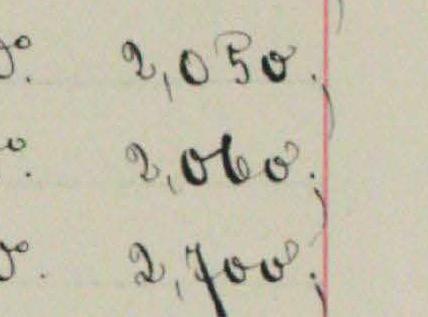 º. 2,050.
º. 2,060.
º. 2,700.